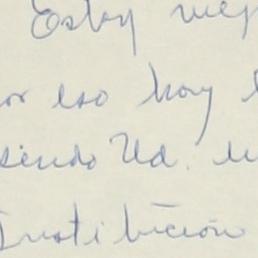 Estoy mej
or eso hoy
siendo Ud.
Institución